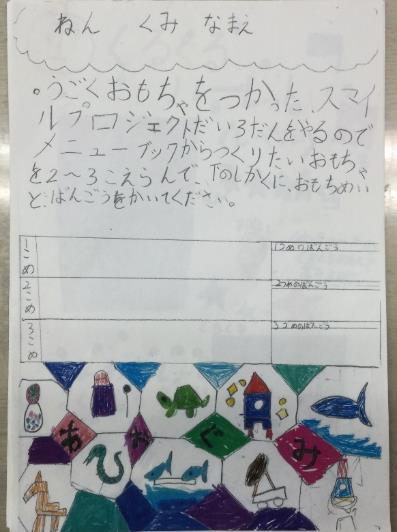 ねん くみ なまえ
。うごくおもちゃをつかった、スマイ
ルプロジェクトだい3だんをやるので
メニューブックからつくりたいおもちゃ
を2〜3こえらんで、下のしかくに、おもちゃめい
と、ばんごうをかいてください。
1こめ
1つめのばんごう
2こめ
2つめのばんごう
3こめ
3つめのばんごう
あおぐみ